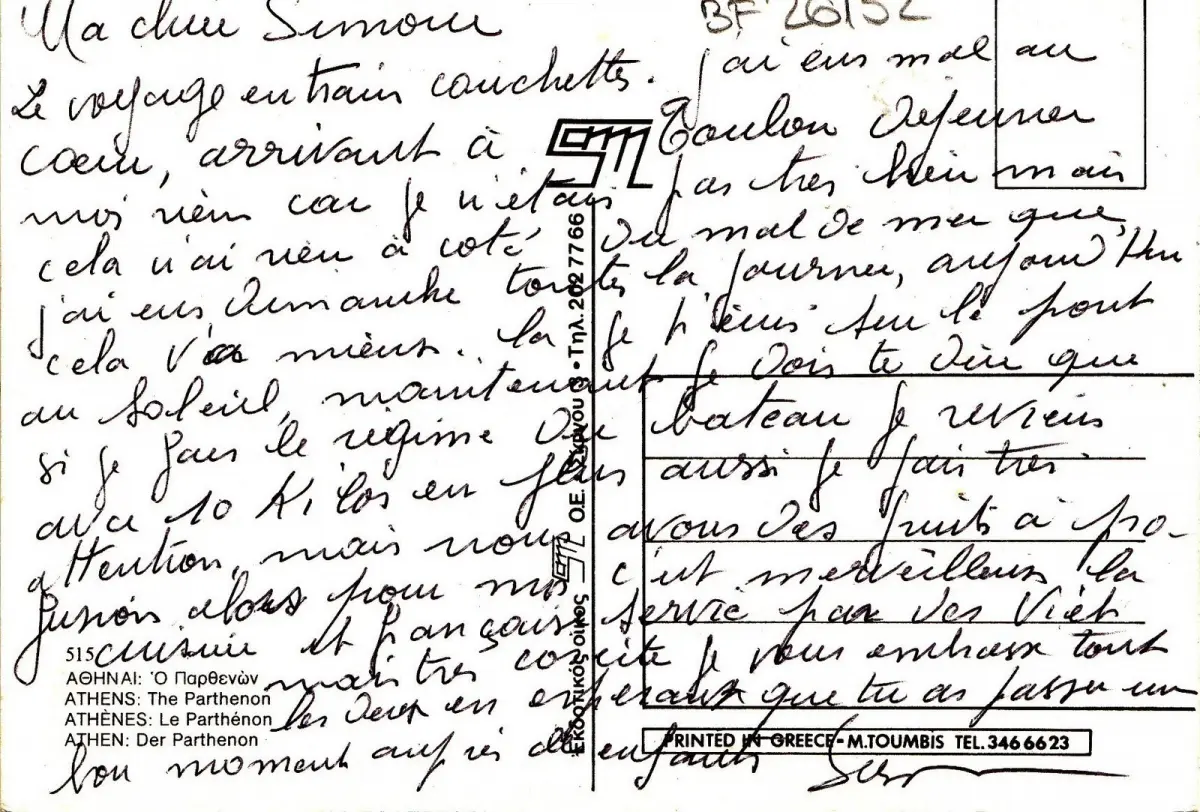 Ma chère Simone
BF 26152
Le voyage en train couchettes. j'ai eus mal au
cœur, arrivant à Toulon déjeuner
moi rien car je n'étais pas très bien mais
cela n'ai rien à coté du mal de mer que
j'ai eus dimanche toutes la journer, aujourd'hui
cela va mieux. la je t'écris sur le pont
au soleil, maintenant je dois te dire que
si je fais le régime du bateau je reviens
avec 10 Kilos en plus aussi je fais tres
attention, mais nous avons des fruits à pro-
fusion alors pour moi c'est merveilleux, la
cuisine et française servie par des Viet
mais tres correcte je vous embrasse tout
les deux en esperant que tu as passer un
bon moment auprès des enfants
515
ΑΘΗΝΑΙ: Ὁ Παρθενὼν
ATHENS: The Parthenon
ATHÈNES: Le Parthénon
ATHEN: Der Parthenon
ΕΚΔΟΤΙΚΟΣ ΟΙΚΟΣ Ο.Ε. • Τηλ. 202 77 66
PRINTED IN GREECE - M.TOUMBIS TEL. 346 66 23